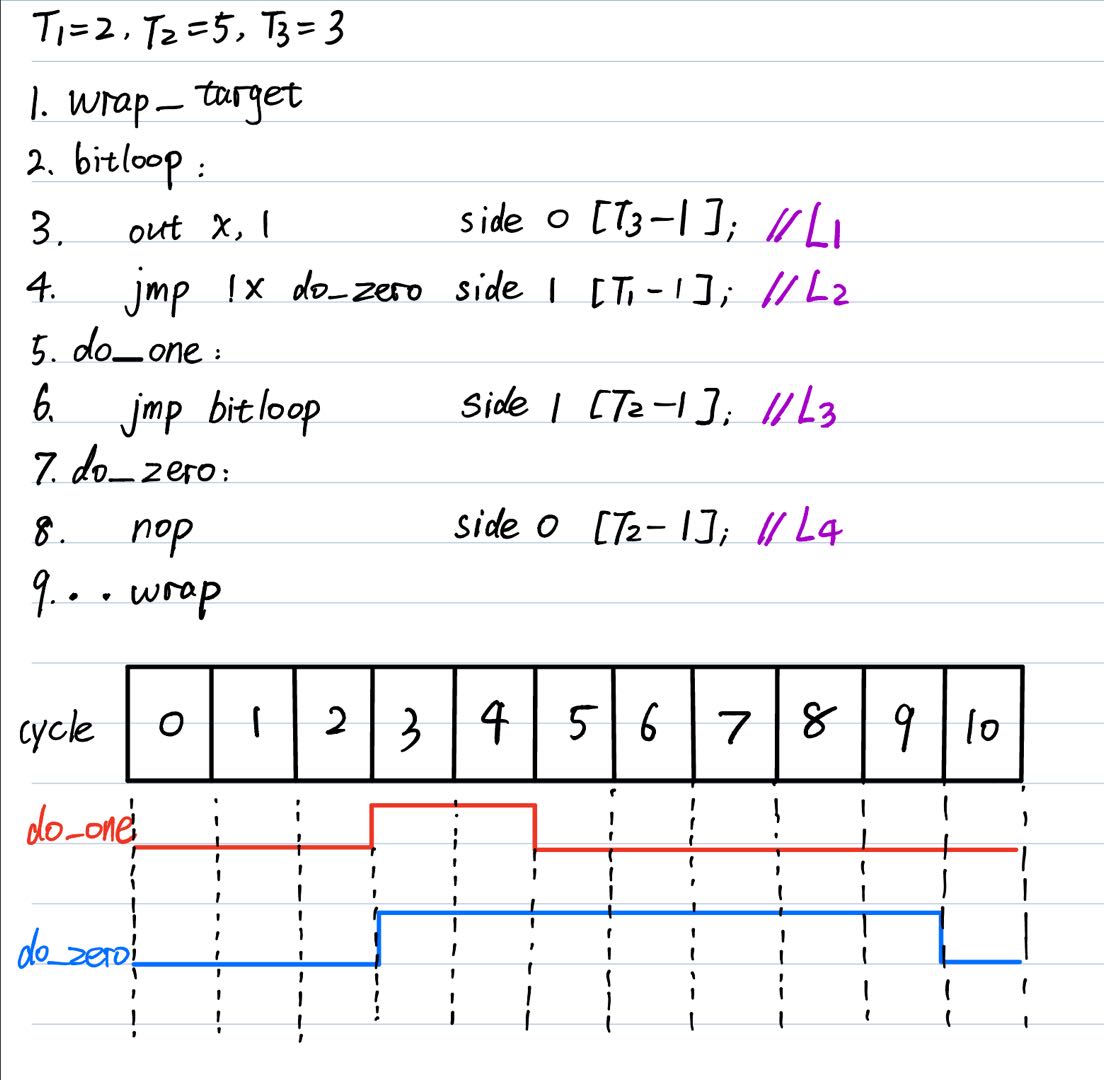 T₁=2, T₂=5, T₃=3
1. wrap_target
2. bitloop:
3. out x, 1 side 0 [T₃-1]; //L1
4. jmp !x do_zero side 1 [T₁-1]; //L2
5. do_one:
6. jmp bitloop side 1 [T₂-1]; //L3
7. do_zero:
8. nop side 0 [T₂-1]; //L4
9. . . wrap
cycle 0 1 2 3 4 5 6 7 8 9 10
do_one
do_zero